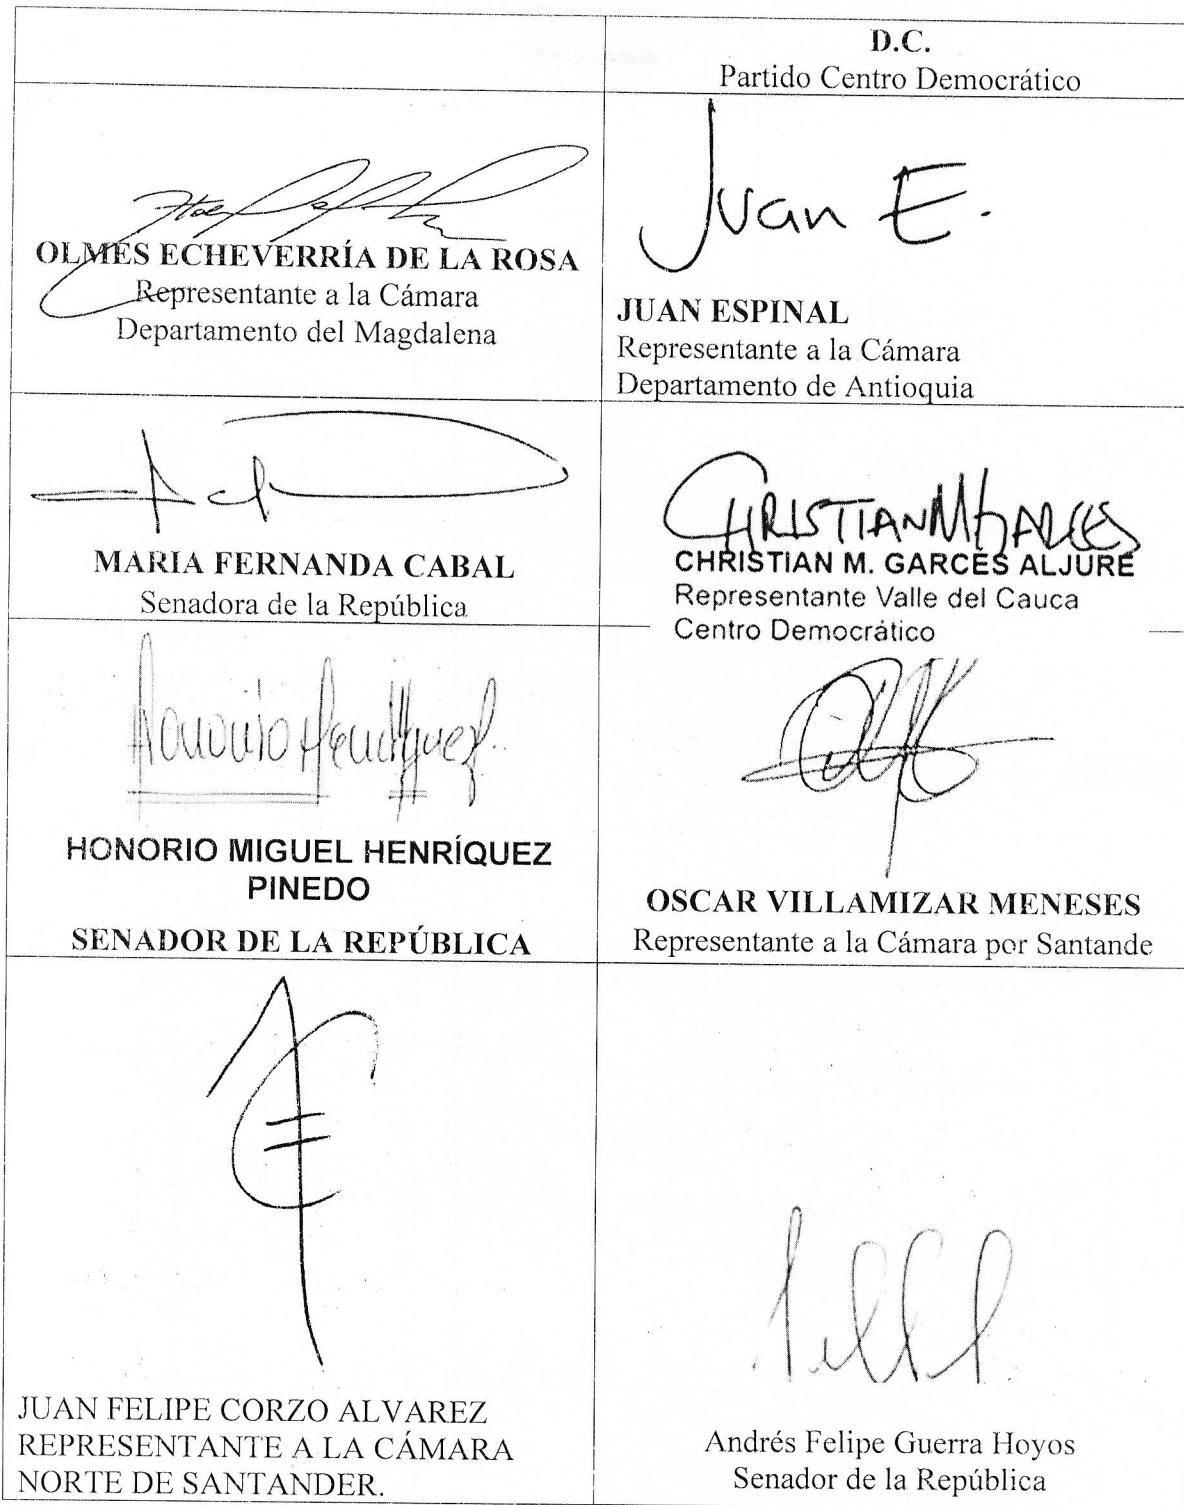 D.C.
Partido Centro Democrático
OLMES ECHEVERRÍA DE LA ROSA
Representante a la Cámara
Departamento del Magdalena
Juan E.
JUAN ESPINAL
Representante a la Cámara
Departamento de Antioquia
MARIA FERNANDA CABAL
Senadora de la República
CHRISTIAN M GARCES
CHRISTIAN M. GARCÉS ALJURE
Representante Valle del Cauca
Centro Democrático
Honorio Henríquez
HONORIO MIGUEL HENRÍQUEZ
PINEDO
SENADOR DE LA REPÚBLICA
OSCAR VILLAMIZAR MENESES
Representante a la Cámara por Santande
JUAN FELIPE CORZO ALVAREZ
REPRESENTANTE A LA CÁMARA
NORTE DE SANTANDER.
Andrés Felipe Guerra Hoyos
Senador de la República